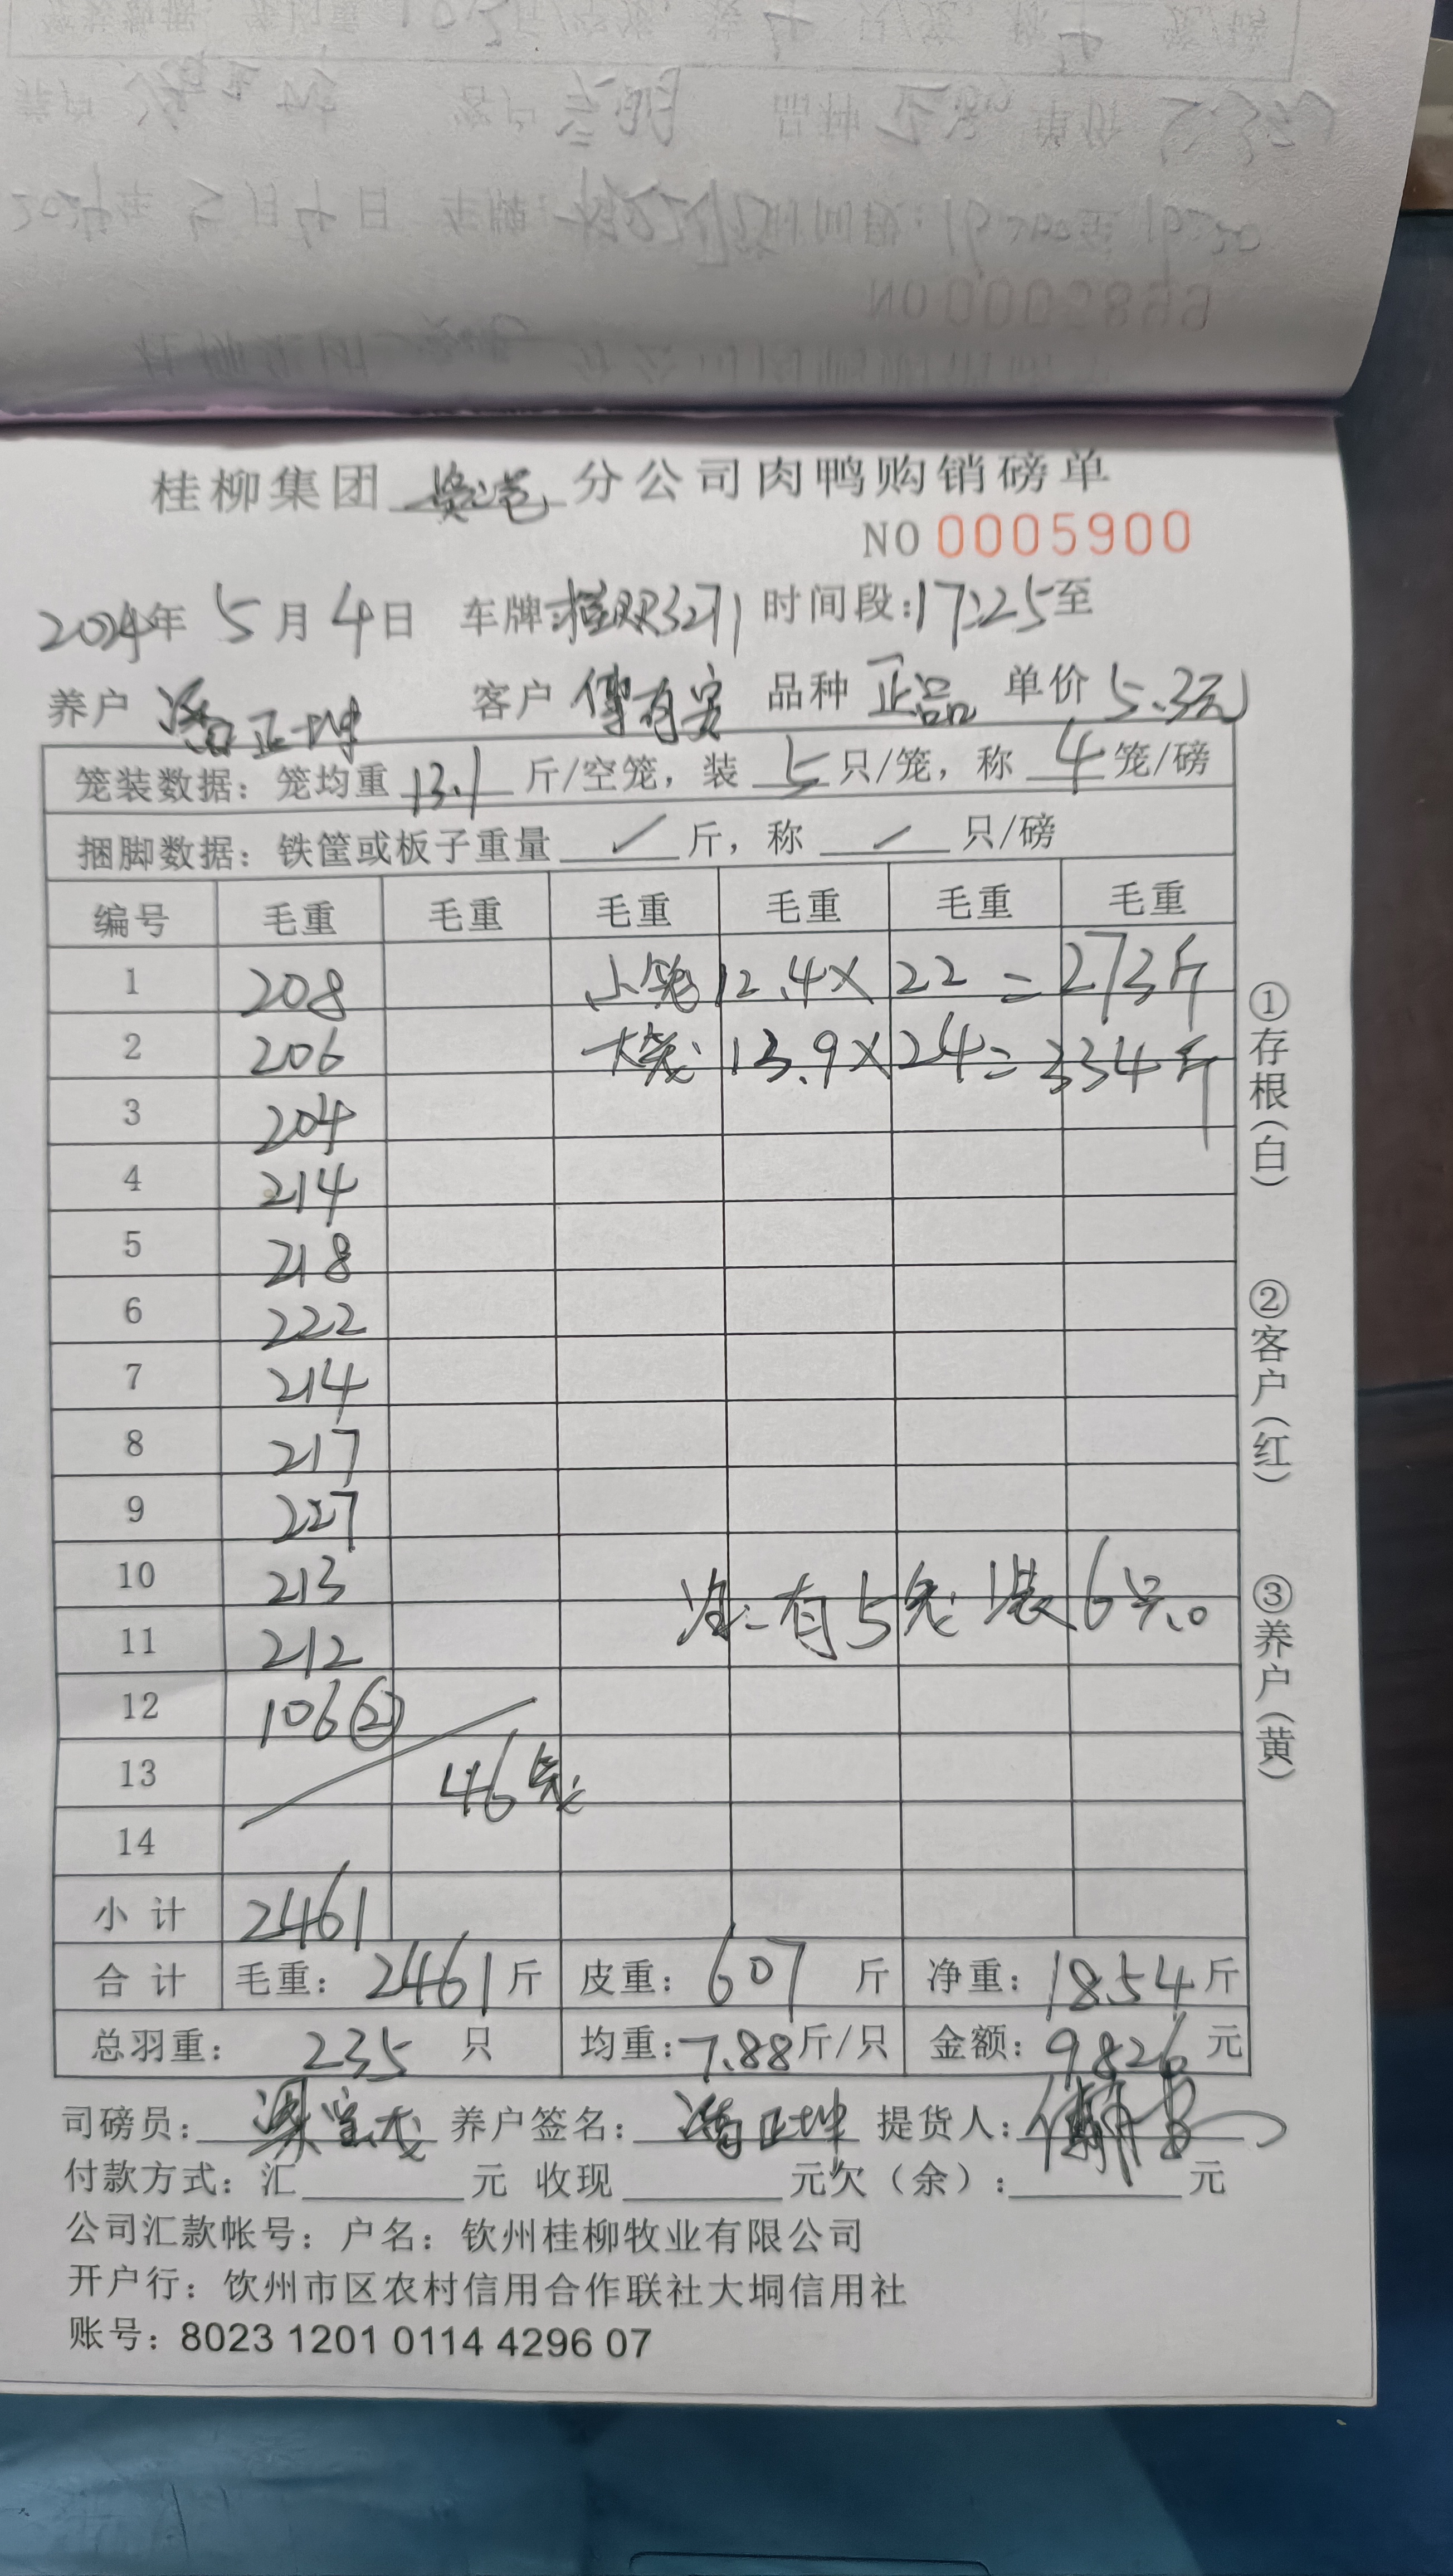 桂柳集团 分公司肉鸭购销磅单
NO 0005900
2024年 5月4日 车牌:桂双3271 时间段:17:25至
养户 潘正坤 客户 傅有安 品种 正品 单价 5.3元
笼装数据：笼均重 13.1 斤/空笼，装 5 只/笼，称 4 笼/磅
捆脚数据：铁筐或板子重量 ✓ 斤，称 ✓ 只/磅
编号 毛重 毛重 毛重 毛重 毛重 毛重
1 208 小笼 12.4× 22 = 273斤
2 206 大笼 13.9×24= 334斤
3 204
4 214
5 218
6 222
7 214
8 217
9 227
10 213 注:有5笼装6只。
11 212
12 106②
13 46笼
14
小计 2461
合计 毛重：2461斤 皮重：607 斤 净重：1854斤
总羽重： 235 只 均重:7.88斤/只 金额：9826元
司磅员： 养户签名：潘正坤 提货人:
付款方式：汇 元 收现 元欠（余）: 元
公司汇款帐号：户名：钦州桂柳牧业有限公司
开户行：饮州市区农村信用合作联社大垌信用社
账号：8023 1201 0114 4296 07
①存根(白)
②客户(红)
③养户(黄)